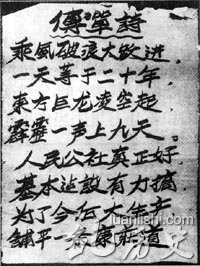 傳單詩
乘風破浪大跃进，
一天等于二十年，
東方巨龙凌空起
霹靂一声上九天。
人民公社真正好
基本建設有力搞
为了今后
鋪平一 康莊道
luanlishi.com